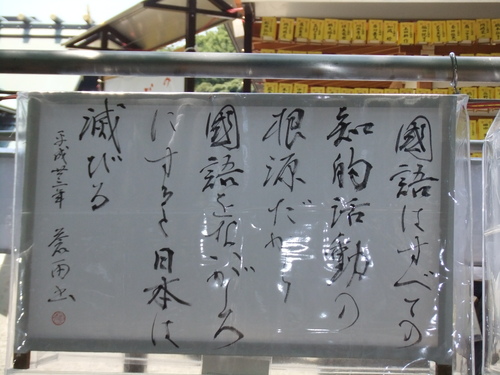 國語はすべての
知的活動の
根源だから
國語をないがしろ
にすると日本は
滅びる
平成廿三年 蒼雨書